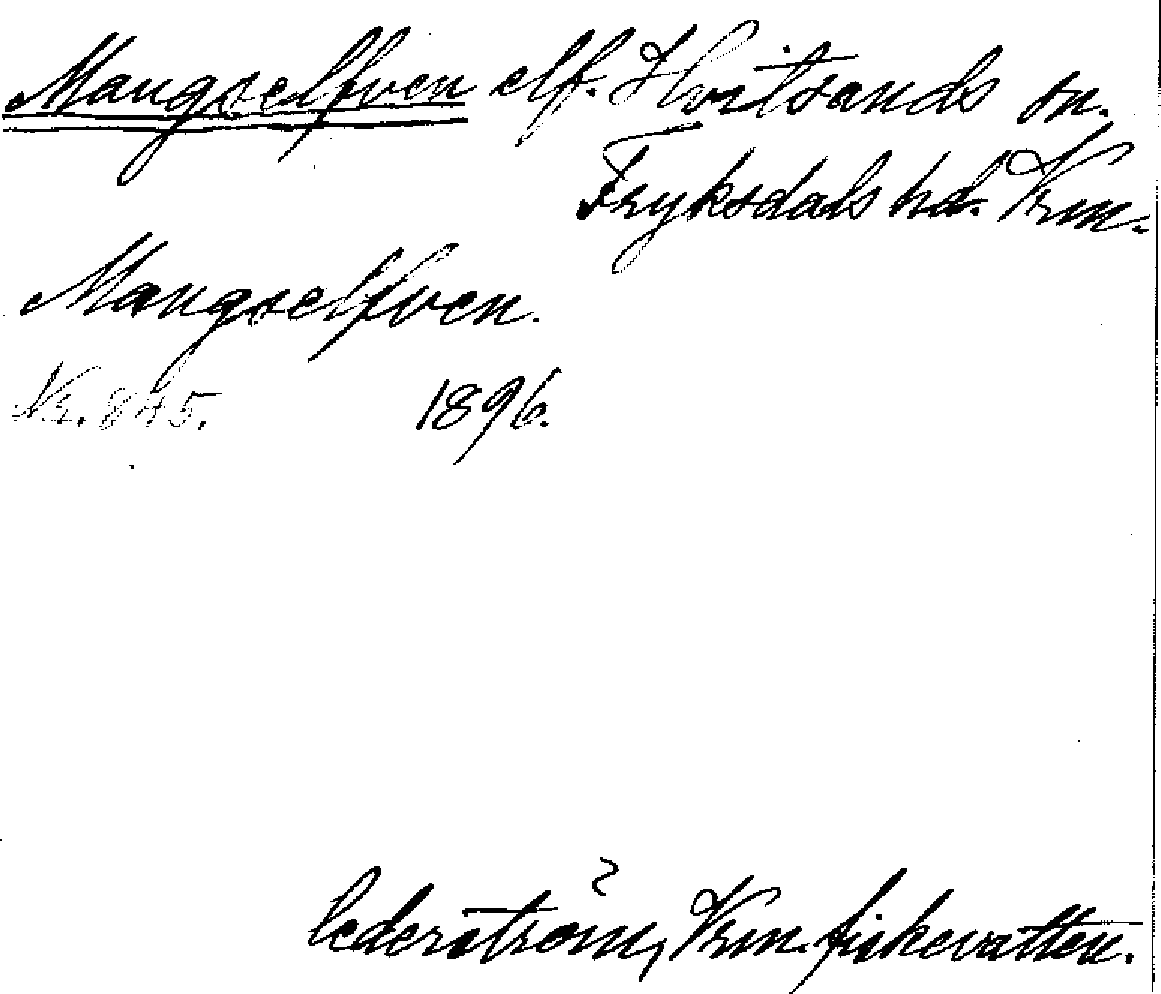 Mangselfven elf. Hvitsands sn.
Fryksdals hd. Vrm.
Mangselfven.
Nr. 845. 1896.
Cederström, Vrm. fiskevatten.